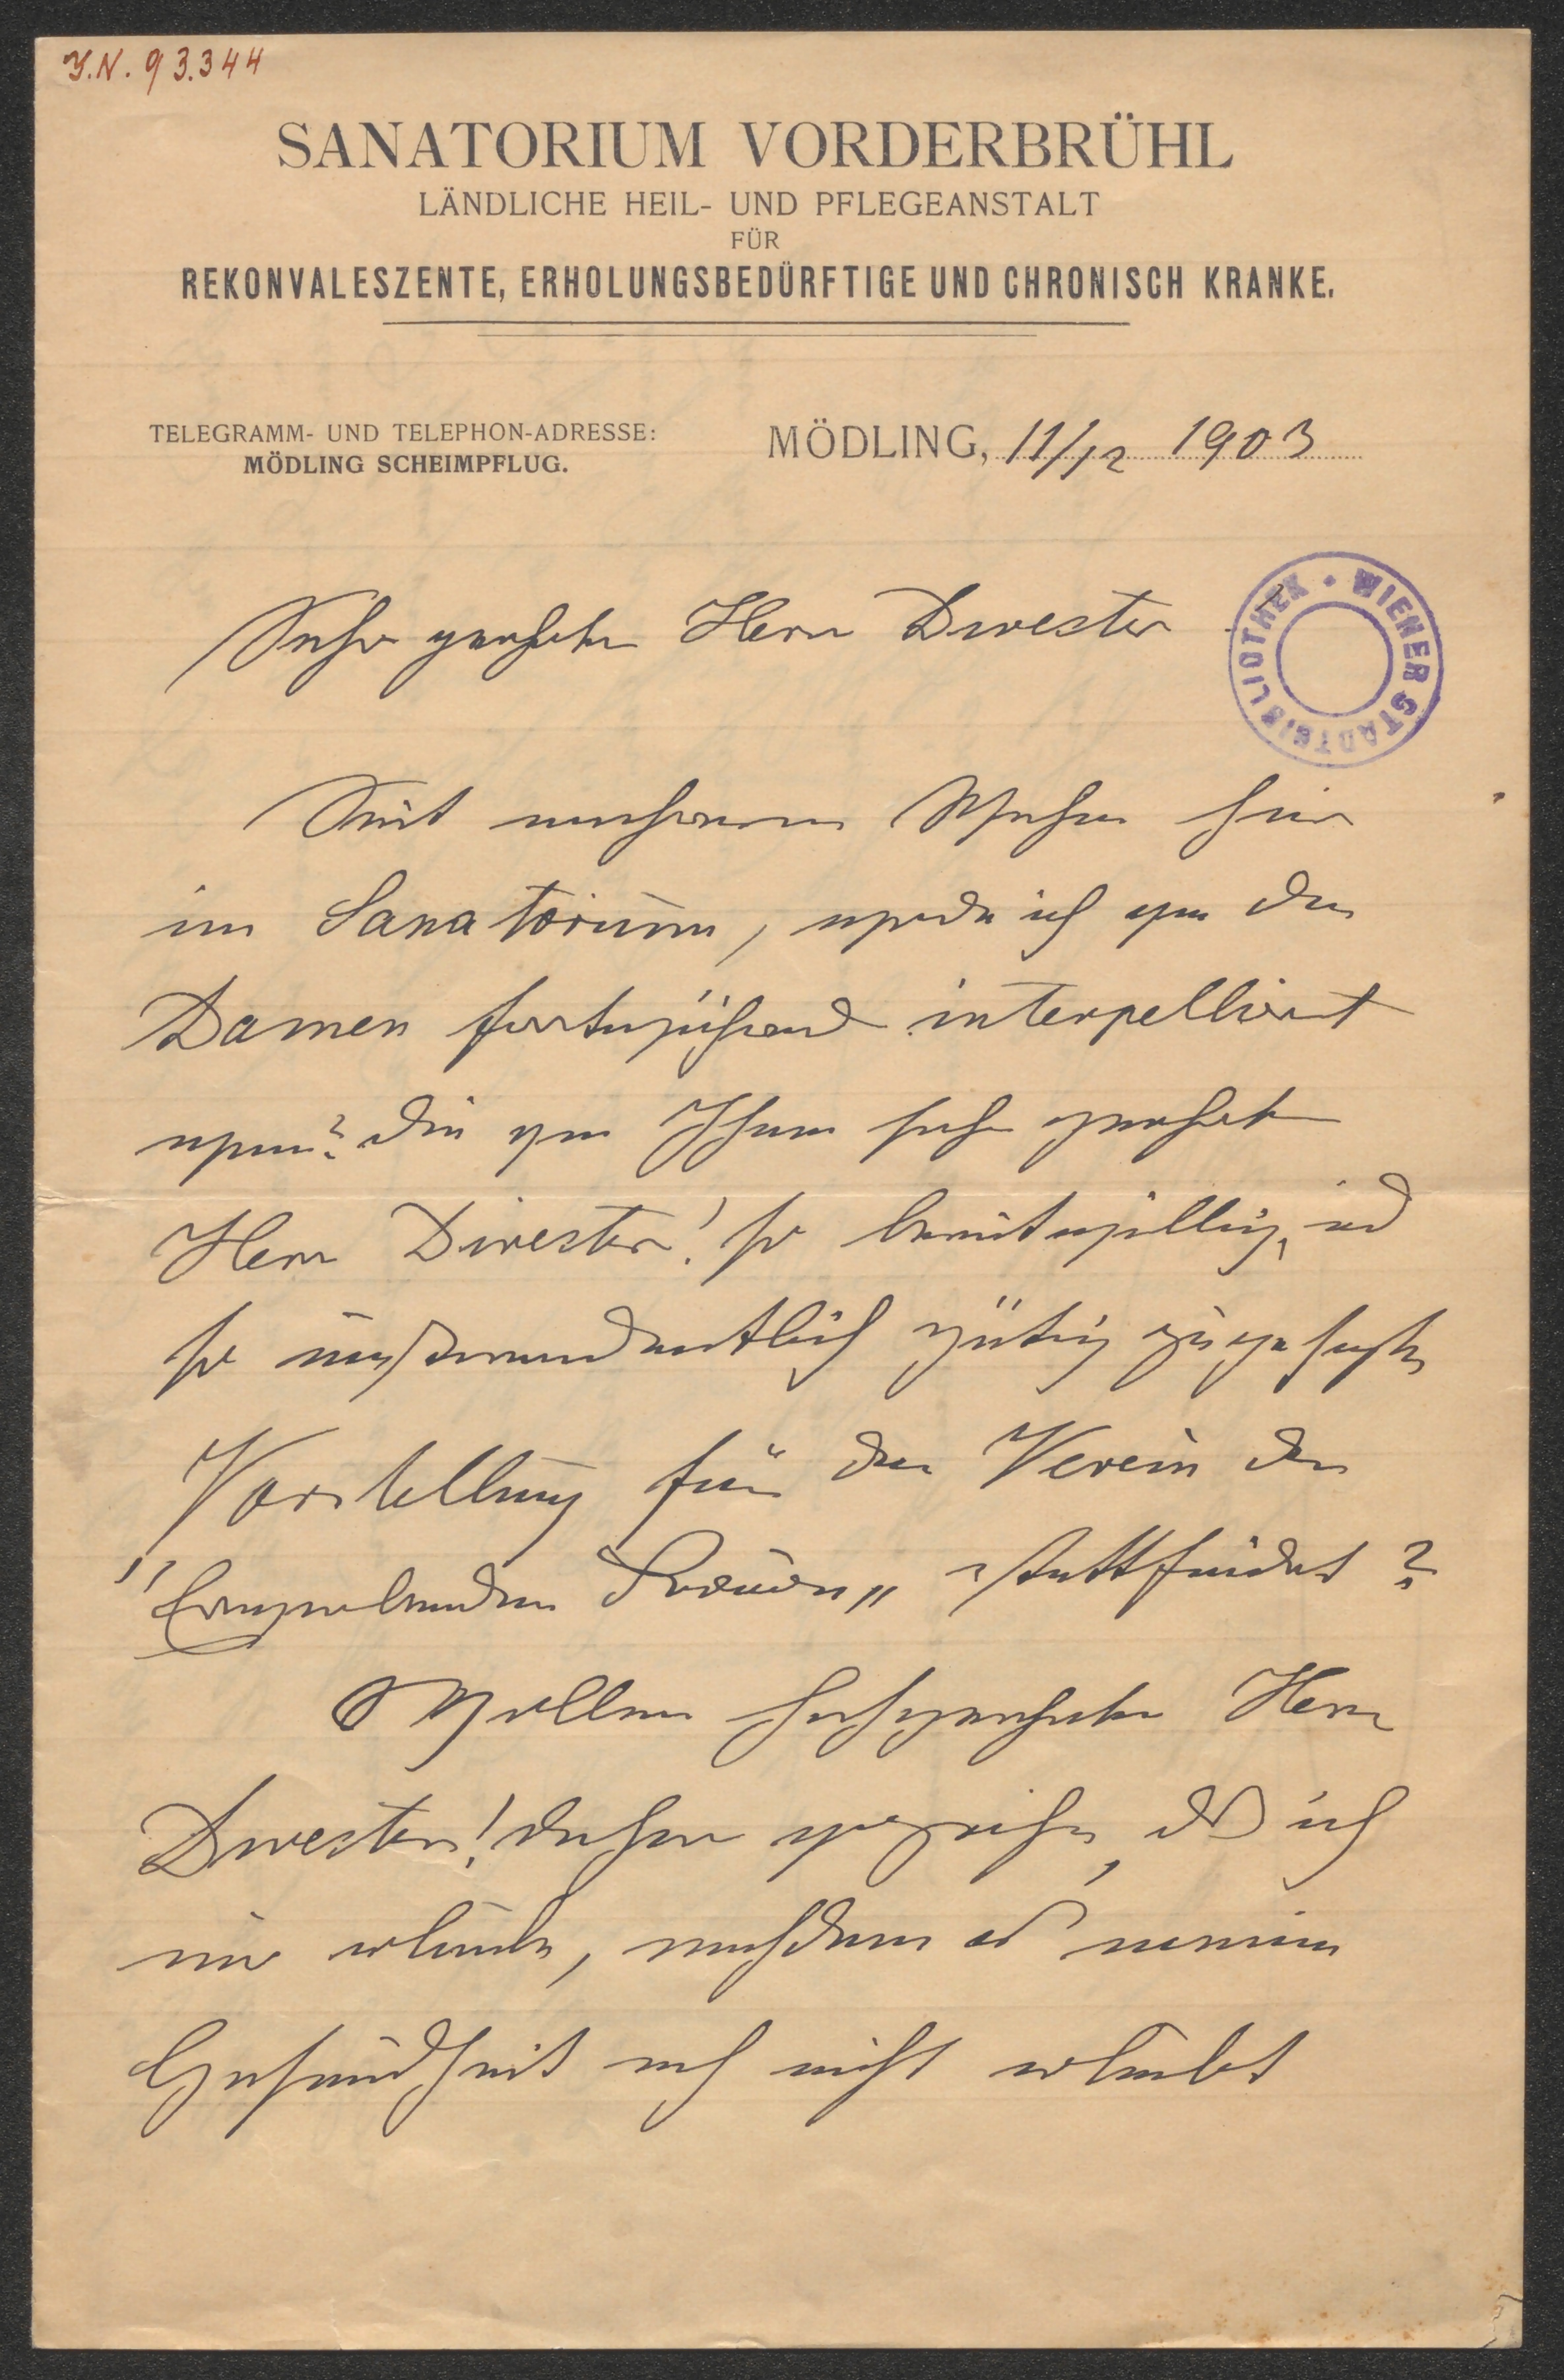 J.N. 93.344
SANATORIUM VORDERBRÜHL
LÄNDLICHE HEIL- UND PFLEGEANSTALT
FÜR
REKONVALESZENTE, ERHOLUNGSBEDÜRFTIGE UND CHRONISCH KRANKE.
TELEGRAMM- UND TELEPHON-ADRESSE:
MÖDLING SCHEIMPFLUG.
MÖDLING, 11/12 1903
WIENER STADTBIBLIOTHEK
Sehr geehrter Herr Director
Seit mehreren Wochen hier
im Sanatorium, werde ich von den
Damen fortwährend interpelliert
wann? die von Ihnen sehr geehrter
Herr Director! so bereitwillig, und
so außerordentlich gütig zugesagte
Vorstellung für den Verein der
"Erwerbenden Frauen" stattfindet?
Wollen hochgeehrter Herr
Director! daher verzeihen, daß ich
mir erlaube, nachdem es meine
Gesundheit noch nicht erlaubt